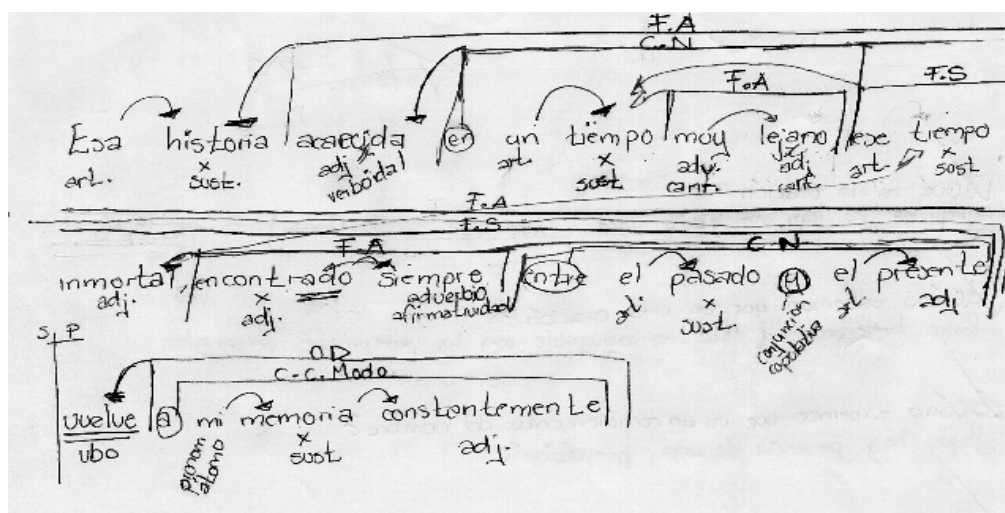 F.A
C.N
F.A F.S
Esa historia acaecida en un tiempo muy lejano ese tiempo
art. x sust. adj verboidal art. x sust. adv. cant. adj. cant. art x sust.
F.A
F.S
F.A C N
inmortal, encontrado siempre entre el pasado y el presente
adj. x adj. adverbio afirmatividad x sust. conjunción copulativa art adj
S P
O.D
C.C.Modo
vuelve a mi memoria constantemente
vbo pronom atono x sust. adj.